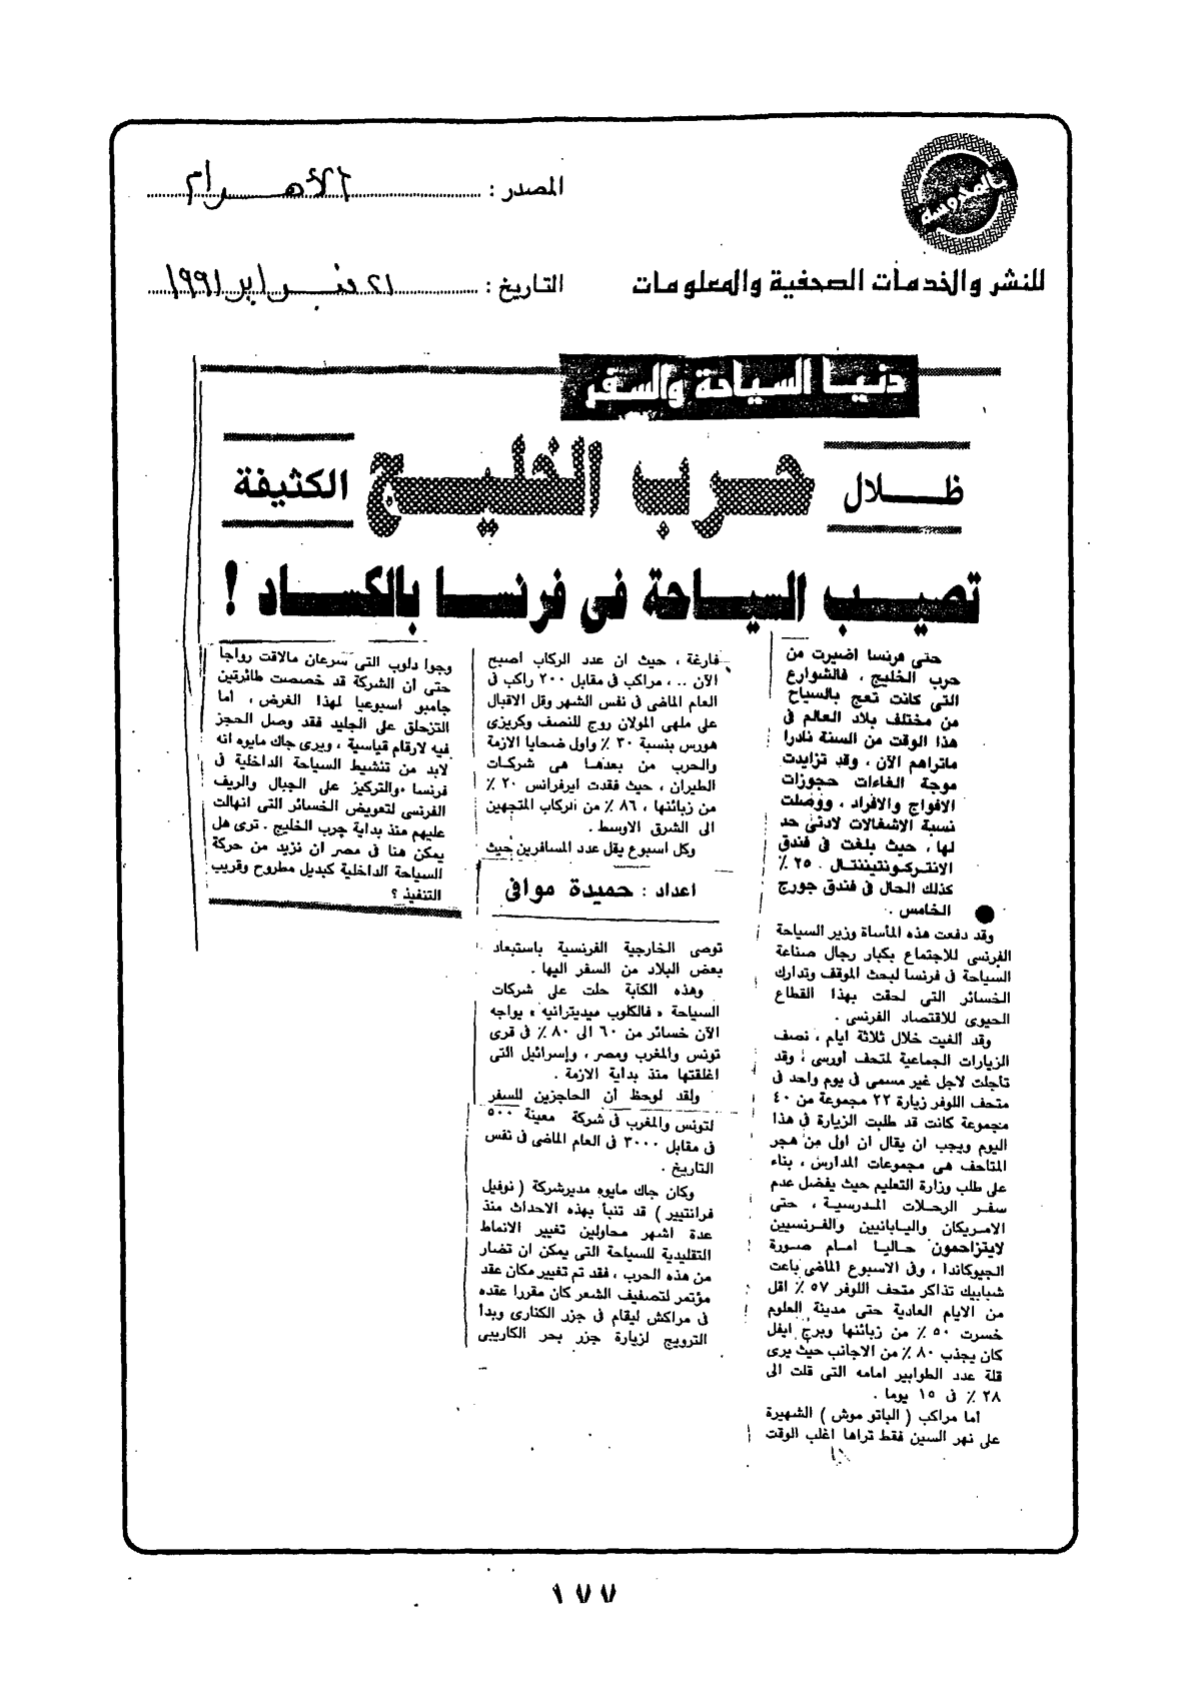 المصدر : الأهرام
بالمدرسة
للنشر والخدمات الصحفية والمعلومات
التاريخ : ٢١ فبراير ١٩٩١
دنيا السياحة والسفر
ظلال حرب الخليج الكثيفة
تصيب السياحة فى فرنسا بالكساد !
حتى فرنسا اضيرت من
حرب الخليج ، فالشوارع
التى كانت تعج بالسياح
من مختلف بلاد العالم فى
هذا الوقت من السنة نادرا
ماتراهم الآن ، وقد تزايدت
موجة الغاءات حجوزات
الافواج والافراد ، ووصلت
نسبة الاشغالات لادنى حد
لها ، حيث بلغت فى فندق
الانتركونتيننتال ٢٥ ٪
كذلك الحال فى فندق جورج
الخامس .
وقد دفعت هذه المأساة وزير السياحة
الفرنسى للاجتماع بكبار رجال صناعة
السياحة فى فرنسا لبحث الموقف وتدارك
الخسائر التى لحقت بهذا القطاع
الحيوى للاقتصاد الفرنسى .
وقد ألغيت خلال ثلاثة ايام ، نصف
الزيارات الجماعية لمتحف أورسى ، وقد
تأجلت لاجل غير مسمى فى يوم واحد فى
متحف اللوفر زيارة ٢٢ مجموعة من ٤٠
مجموعة كانت قد طلبت الزيارة فى هذا
اليوم ويجب ان يقال ان اول من هجر
المتاحف هى مجموعات المدارس ، بناء
على طلب وزارة التعليم حيث يفضل عدم
سفر الرحلات المدرسية ، حتى
الامريكان واليابانيين والفرنسيين
لايتزاحمون حاليا امام صورة
الجيوكاندا ، وفى الاسبوع الماضى باعت
شبابيك تذاكر متحف اللوفر ٥٧ ٪ اقل
من الايام العادية حتى مدينة العلوم
خسرت ٥٠ ٪ من زبائنها وبرج ايفل
كان يجذب ٨٠ ٪ من الاجانب حيث يرى
قلة عدد الطوابير امامه التى قلت الى
٢٨ ٪ فى ١٥ يوما .
أما مراكب ( الباتو موش ) الشهيرة
على نهر السين فقط تراها اغلب الوقت
فارغة ، حيث ان عدد الركاب اصبح
الآن .. ، مراكب فى مقابل ٢٠٠ راكب فى
العام الماضى فى نفس الشهر وقل الاقبال
على ملهى المولان روج للنصف وكريزى
هورس بنسبة ٣٠ ٪ واول ضحايا الازمة
والحرب من بعدها هى شركات
الطيران ، حيث فقدت ايرفرانس ٢٠ ٪
من زبائنها ، ٨٦ ٪ من الركاب المتجهين
الى الشرق الاوسط .
وكل اسبوع يقل عدد المسافرين حيث
اعداد : حميدة موافى
توصى الخارجية الفرنسية باستبعاد
بعض البلاد من السفر اليها .
وهذه الكآبة حلت على شركات
السياحة « فالكلوب ميديترانيه » يواجه
الآن خسائر من ٦٠ الى ٨٠ ٪ فى قرى
تونس والمغرب ومصر ، وإسرائيل التى
اغلقتها منذ بداية الازمة .
ولقد لوحظ أن الحاجزين للسفر
لتونس والمغرب فى شركة معينة ٥٠٠
فى مقابل ٣٠٠٠ فى العام الماضى فى نفس
التاريخ .
وكان جاك مايوه مديرشركة ( نوفيل
فرانتيير ) قد تنبأ بهذه الاحداث منذ
عدة اشهر محاولين تغيير الانماط
التقليدية للسياحة التى يمكن ان تضار
من هذه الحرب ، فقد تم تغيير مكان عقد
مؤتمر لتصفيف الشعر كان مقررا عقده
فى مراكش ليقام فى جزر الكنارى وبدأ
الترويج لزيارة جزر بحر الكاريبى
وجوا دلوب التى سرعان مالاقت رواجا
حتى أن الشركة قد خصصت طائرتين
جامبو اسبوعيا لهذا الغرض ، أما
التزحلق على الجليد فقد وصل الحجز
فيه لارقام قياسية ، ويرى جاك مايوه انه
لابد من تنشيط السياحة الداخلية فى
فرنسا والتركيز على الجبال والريف
الفرنسى لتعويض الخسائر التى انهالت
عليهم منذ بداية حرب الخليج . ترى هل
يمكن هنا فى مصر ان نزيد من حركة
السياحة الداخلية كبديل مطروح وقريب
التنفيذ ؟
١٧٧